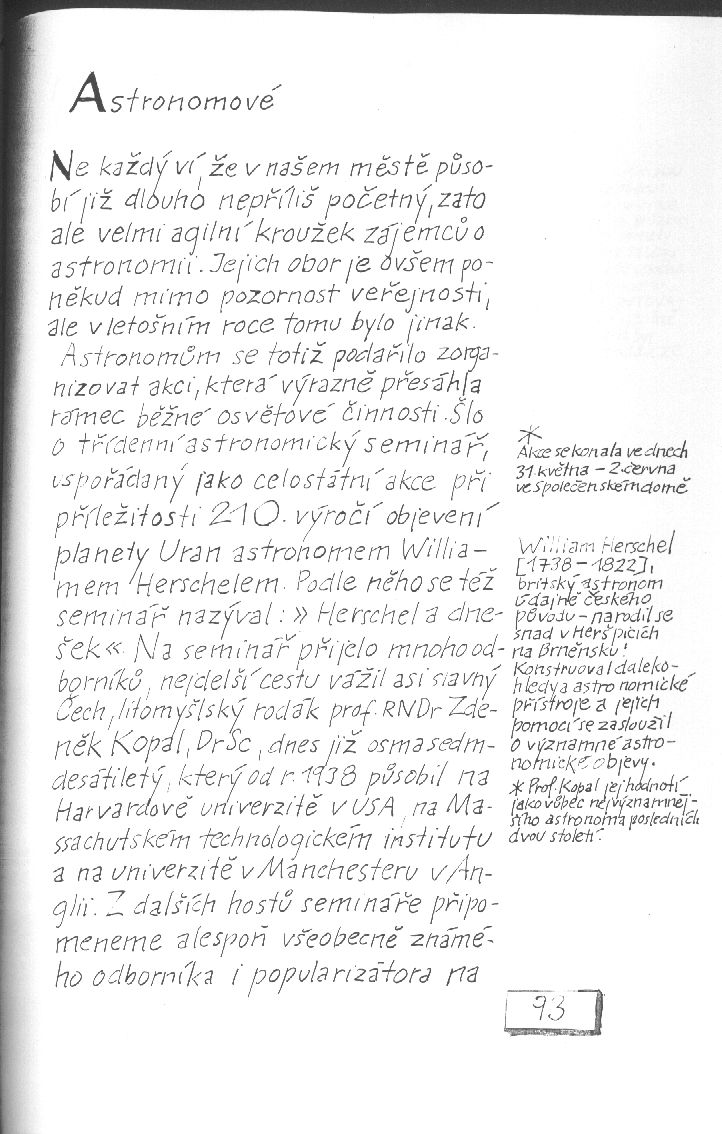 Astronomové
Ne každý ví, že v našem městě půso-
bí již dlouho nepříliš početný, zato
ale velmi agilní kroužek zájemců o
astronomii. Jejich obor je ovšem po-
někud mimo pozornost veřejnosti,
ale v letošním roce tomu bylo jinak.
Astronomům se totiž podařilo zorga-
nizovat akci, která výrazně přesáhla
rámec běžné osvětové činnosti. Šlo
o třídenní astronomický seminář,
uspořádaný jako celostátní akce při
příležitosti 210. výročí objevení
planety Uran astronomem Willia-
mem Herschelem. Podle něho se též
seminář nazýval: » Herschel a dne-
šek «. Na seminář přijelo mnoho od-
borníků, nejdelší cestu vážil asi slavný
Čech, litomyšlský rodák prof. RNDr Zde-
něk Kopal, DrSc, dnes již osmasedm-
desátiletý, který od r. 1938 působil na
Harvardově univerzitě v USA, na Ma-
ssachutském technologickém institutu
a na univerzitě v Manchesteru v An-
glii. Z dalších hostů semináře připo-
meneme alespoň všeobecně známé-
ho odborníka i popularizátora na
*
Akce se konala ve dnech
31. května – 2. června
ve Společenském domě
William Herschel
[1738 – 1822],
britský astronom
údajně českého
původu – narodil se
snad v Heršpicích
na Brněnsku!
Konstruoval daleko-
hledy a astronomické
přístroje a jejich
pomocí se zasloužil
o významné astro-
nomické objevy.
* Prof. Kopal jej hodnotí
jako vůbec nejvýznamněj-
šího astronoma posledních
dvou století.
93